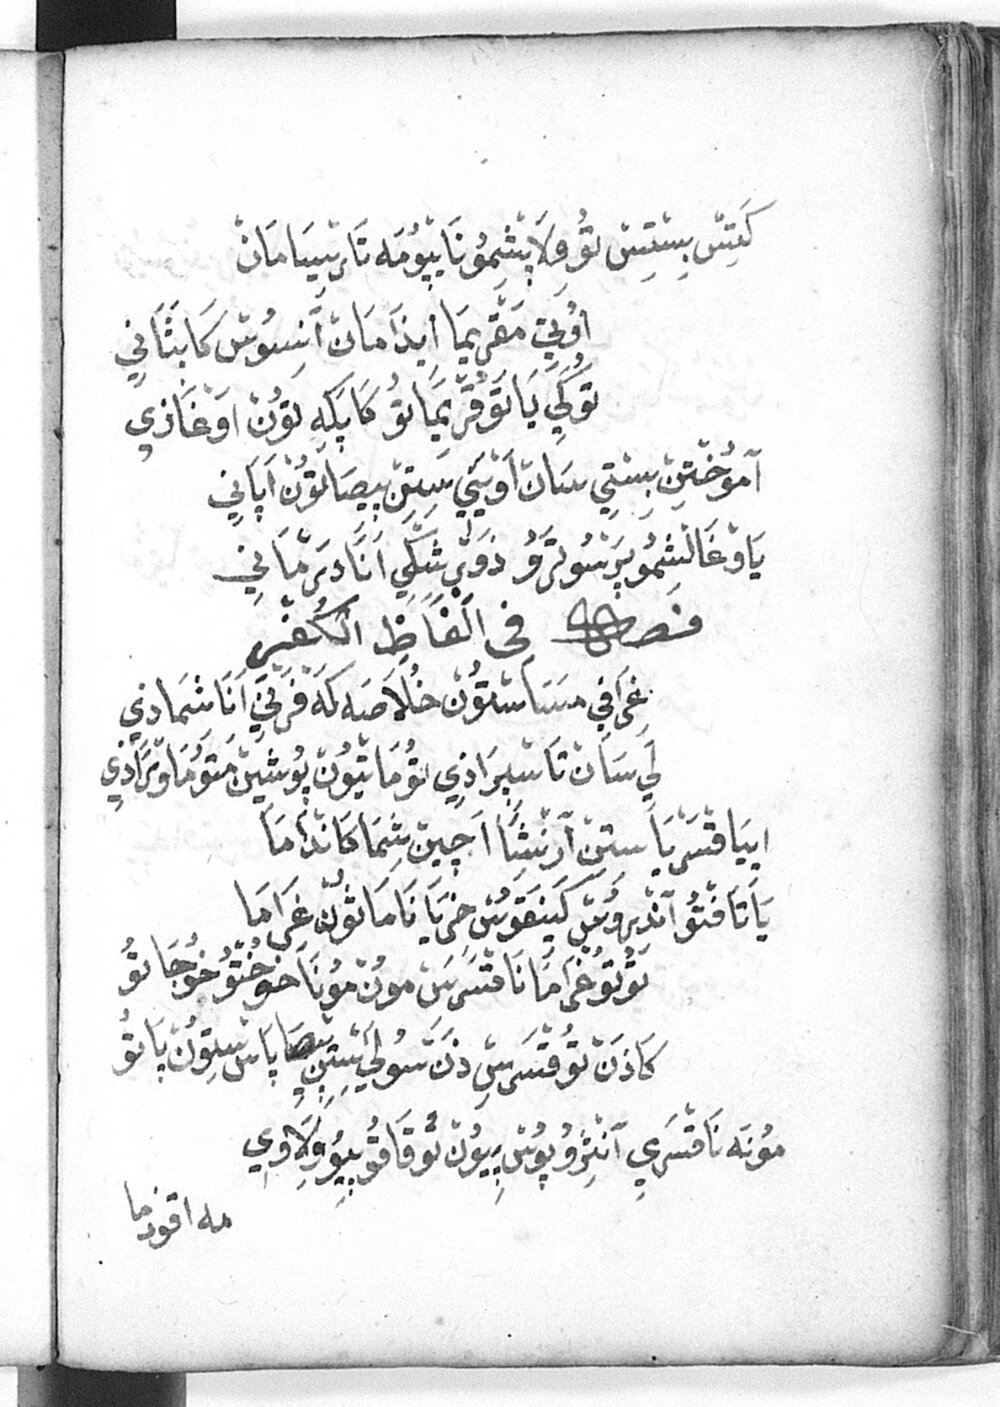 كَتِسْ بِسْتِسْ تُو فِلَاپْشِمُو نَا پِيُومَه تَارْسِيَامَانْ
اُوپِيْ مَقْرِيمَا اَيْدَامَانْ آنِسُوسْ كَابَثَانِي
تُوكَّلِي يَا تَوْفُرِيمَاتُو كَاپَكِه تُونْ اَوْغَاذِي
آمُوخْتِنْ بِسْتِي سَانْ اَوْسَيِ سِتِنْ پِيصَالْتُونْ اَپَانِي
يَاوْغَالْشِمُو پْرَسُوتَرُو ذَوَرِشْكِي اَنَادَرَمَانِي
فصل فِي اَلْفَاظِ الْكُفْرِ
غْرَافِي مَسَاسْتُونْ خُلَاصَه كَه فَرْنِي اَنَاشْمَاذِي
لِي سَانْ تَاسْپِرَاذِي تُومَاتِيُونْ پُوشِينْ مَتُومَاوْرَاذِي
اِپِيَا قْسَرْيَا سْتِنْ آرْنِشَا اَچِينْ شِمَا كَانْدَامَا
يَاتَافْتُو آنْدْرُوسْ كَيْنَقُوسْ خْرِيَا نَامَاثُونْ غْرَامَا
تُوتُو غْرَامَا نَاقْسَرَسْ مُونْ مُونَا خُوخْتُو خُوجَاتُو
كَاذَنْ تُو قْسَرِسْ ذَنْ سُولِي سِتِنْ پَاسْ سِتُونْ پَاتُو
مُونَه نَاقْسَرِي آنْثْرُوپُوسْ پِيُونْ تُوقَاقُو پِيُو وِلَاوِي
مه اقوذما